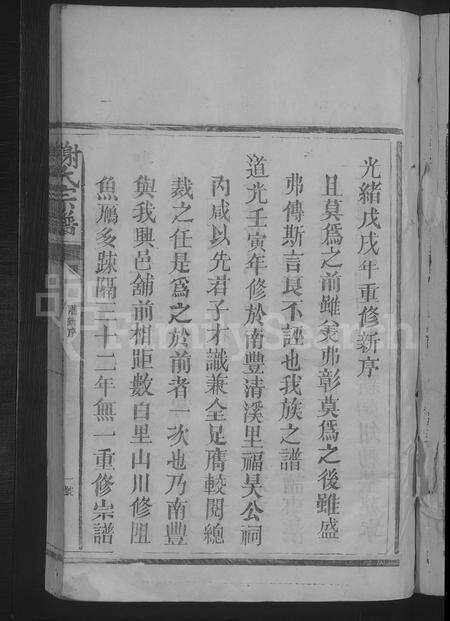 光緒戊戌年重修新序
且莫爲之前雖美弗彰莫爲之後雖盛
弗傳斯言良不誣也我族之譜
道光壬寅年修於南豐清溪里福昊公祠
內咸以先君子才識兼全足膺較閱總
裁之任是爲之於前者一次也乃南豐
與我興邑舖前相距數百里山川修阻
魚鴈多踈隔三十二年無一重修宗譜
謝氏宗譜
新序
FamilySearch